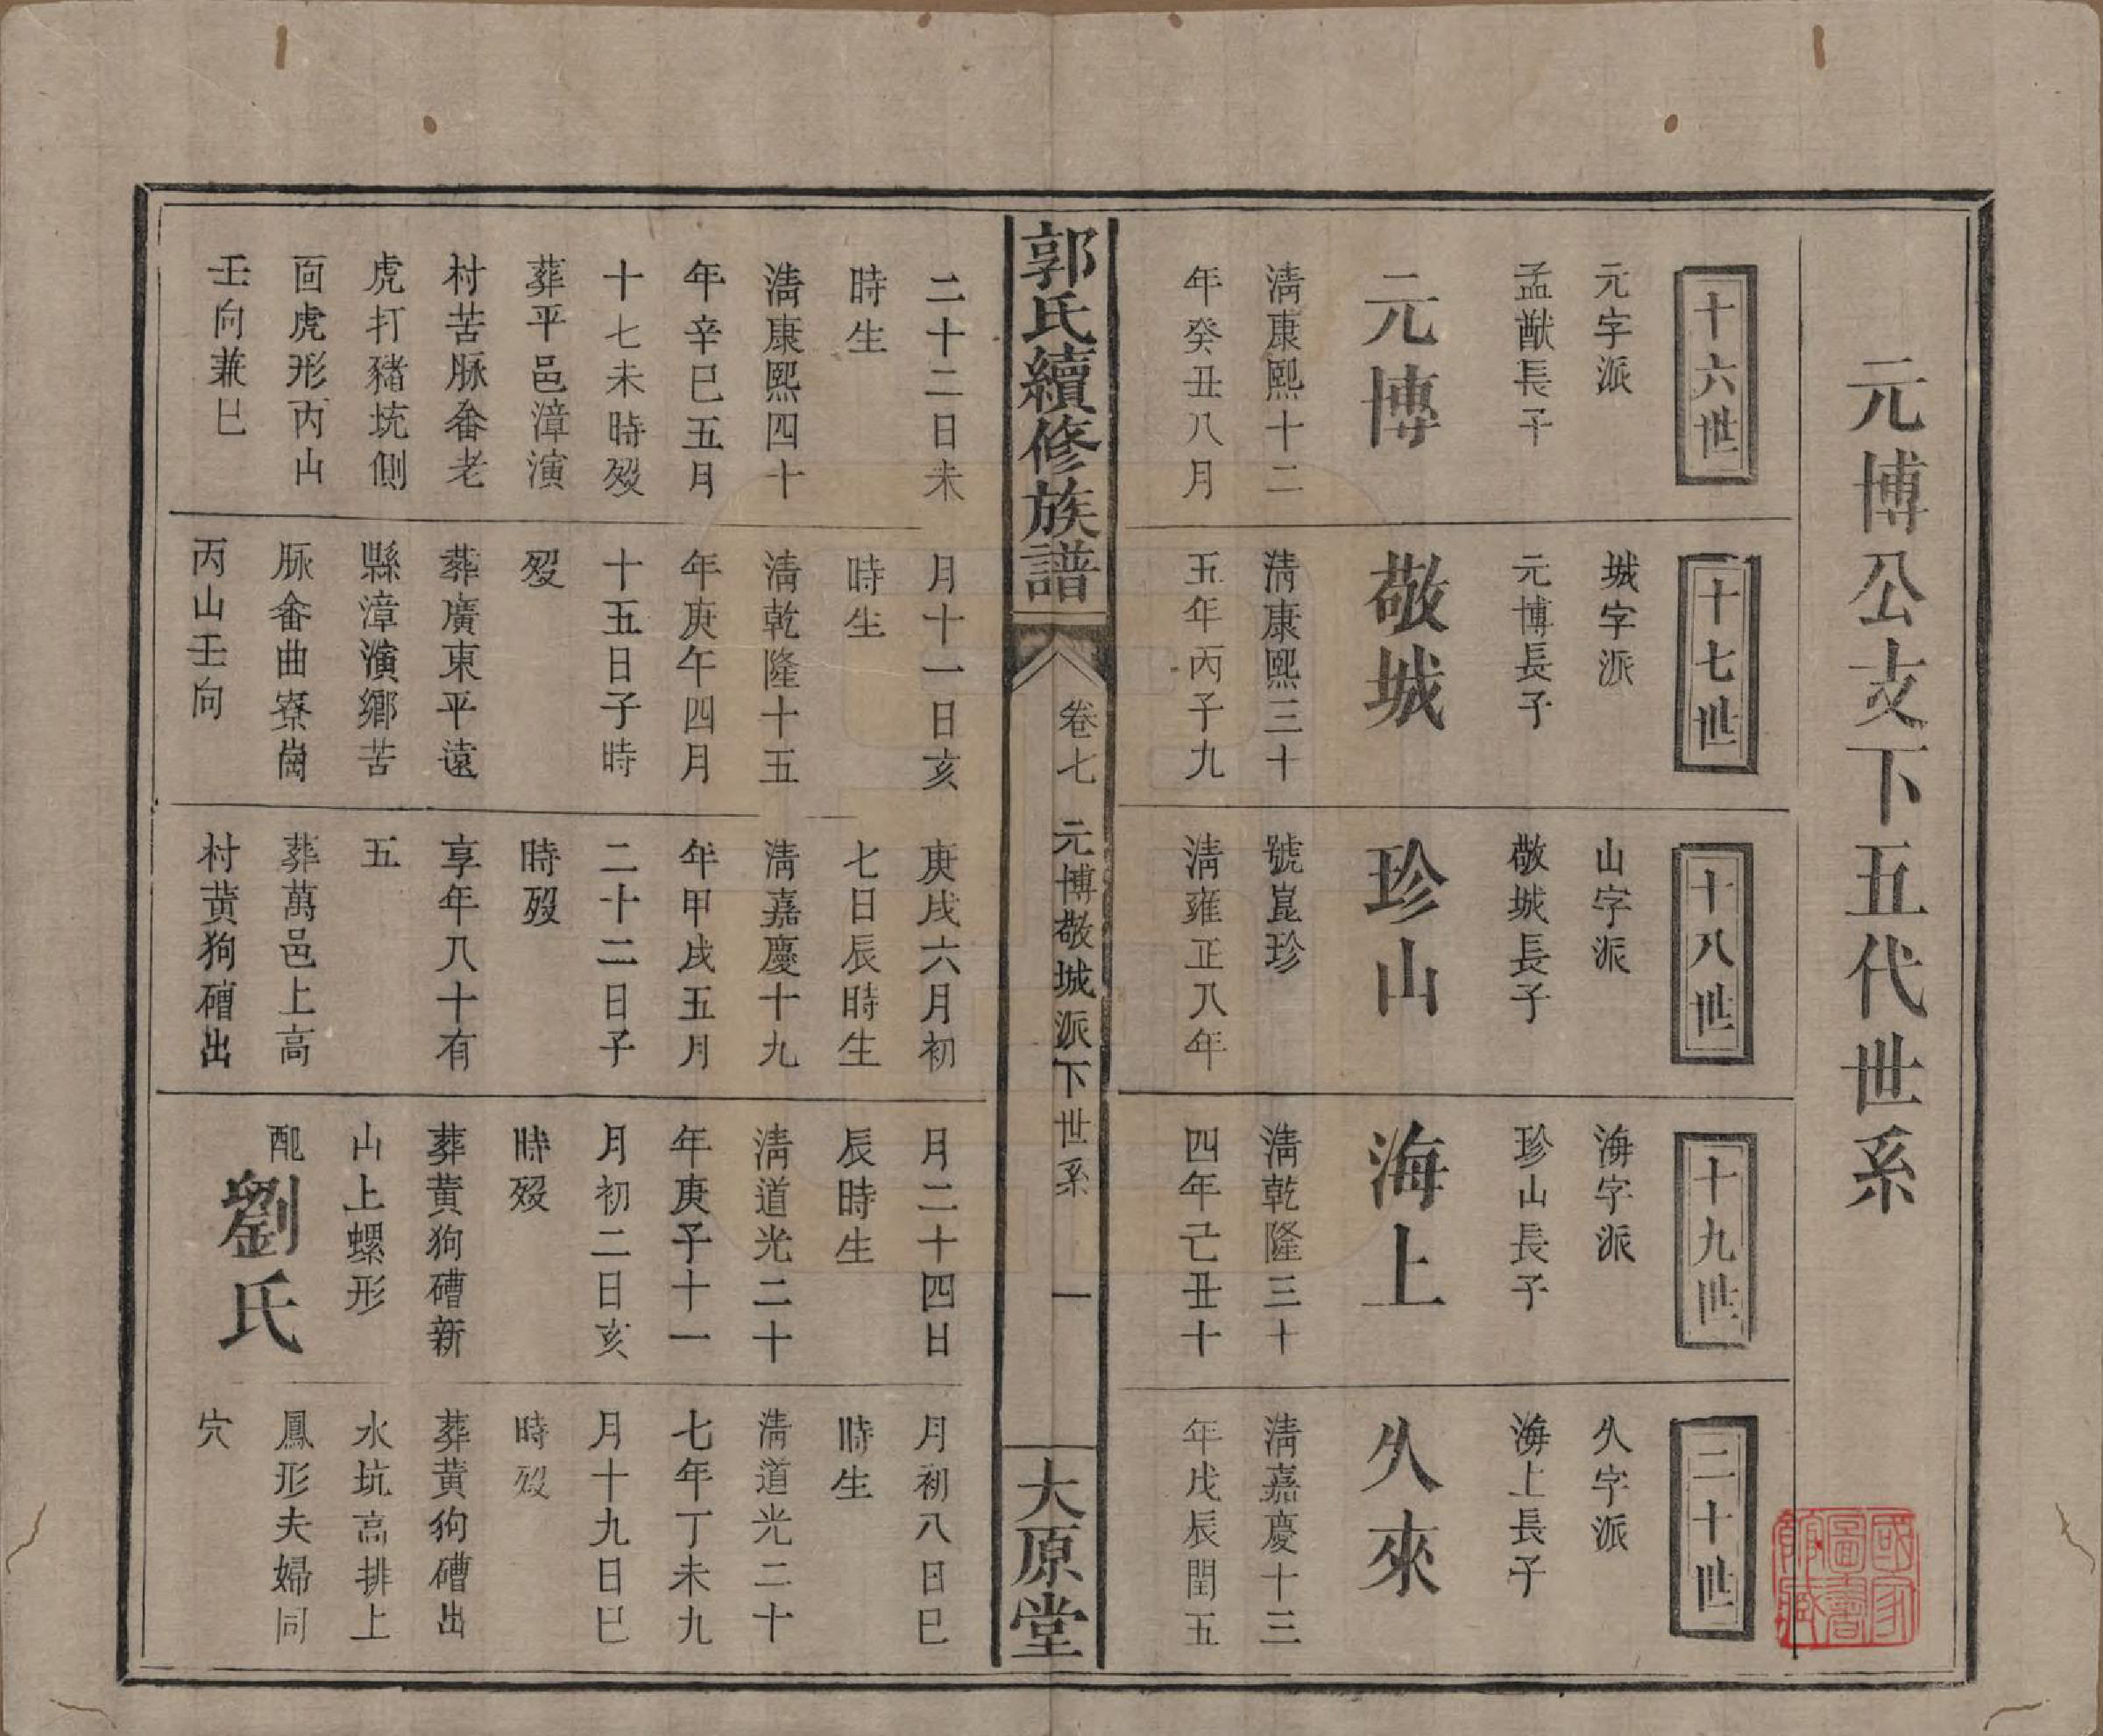 元博公支下五代世系
十六世
元字派
孟猷長子
元博
清康熙十二
年癸丑八月
十七世
城字派
元博長子
敬城
清康熙三十
五年丙子九
十八世
山字派
敬城長子
珍山
號崑珍
清雍正八年
十九世
海字派
珍山長子
海上
清乾隆三十
四年己丑十
二十世
久字派
海上長子
久來
清嘉慶十三
年戊辰閏五
國家
圖書
館藏
郭氏續修族譜
卷七 元博敬城派下世系 一
大原堂
二十二日未
時生
清康熙四十
年辛巳五月
十七未時歿
葬平邑漳演
村苦脉畲老
虎打豬坑側
面虎形丙山
壬向兼巳
月十一日亥
時生
清乾隆十五
年庚午四月
十五日子時
歿
葬廣東平遠
縣漳演鄉苦
脉畲曲寮崗
丙山壬向
庚戌六月初
七日辰時生
清嘉慶十九
年甲戌五月
二十二日子
時歿
享年八十有
五
葬萬邑上高
村黄狗磳出
月二十四日
辰時生
清道光二十
年庚子十一
月初二日亥
時歿
葬黄狗磳新
山上螺形
配劉氏
月初八日巳
時生
清道光二十
七年丁未九
月十九日巳
時歿
葬黄狗磳出
水坑高排上
鳳形夫婦同
穴